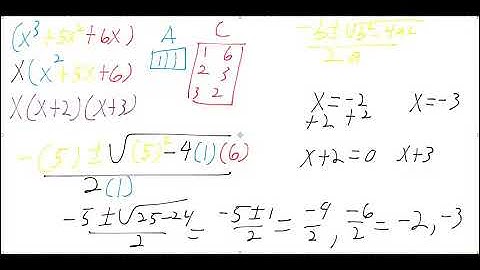 (x³+5x²+6x)
x(x²+5x+6)
x(x+2)(x+3)
A
1 1
C
1 6
2 3
3 2
-b±√b²-4ac
2a
x=-2 x=-3
+2 +2
x+2=0 x+3
-(5)±√(5)²-4(1)(6)
2(1)
-5±√25-24 / 2 = -5±1 / 2 = -4/2, -6/2 = -2,-3